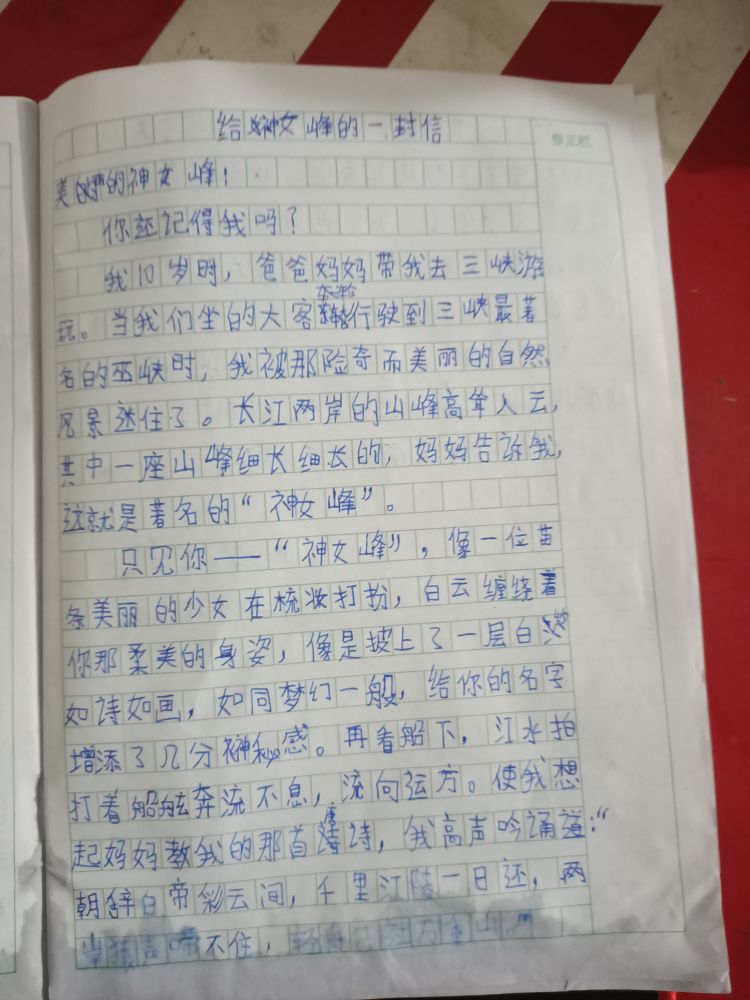 给神女峰的一封信
修正栏
美丽的神女峰：
你还记得我吗？
我10岁时，爸爸妈妈带我去三峡游
玩。当我们坐的大客轮行驶到三峡最著
名的巫峡时，我被那险奇而美丽的自然
风景迷住了。长江两岸的山峰高耸入云，
其中一座山峰细长细长的，妈妈告诉我，
这就是著名的“神女峰”。
只见你——“神女峰”，像一位苗
条美丽的少女在梳妆打扮，白云缠绕着
你那柔美的身姿，像是披上了一层白
如诗如画，如同梦幻一般，给你的名字
增添了几分神秘感。再看船下，江水拍
打着船舷奔流不息，流向远方。使我想
起妈妈教我的那首唐诗，我高声吟诵道：“
朝辞白帝彩云间，千里江陵一日还，两
岸猿声啼不住，轻舟已过万重山